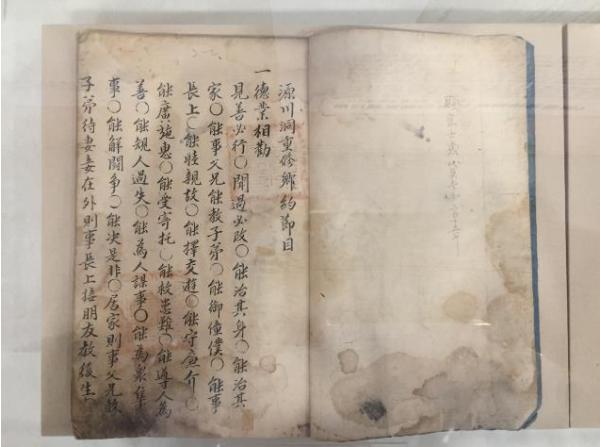 源川洞重修鄉約節目
一德業相勸
見善必行〇聞過必改〇能治其身〇能治其
家〇能事父兄能教子弟〇能御僮僕〇能事
長上〇能睦親故〇能擇交遊〇能守廉介〇
能廣施惠〇能受寄托〇能救患難〇能導人為
善〇能規人過失〇能為人謀事〇能為衆集
事〇能解鬪争〇能决是非〇居家則事父兄教
子弟待妻妾在外則事長上接朋友教後生